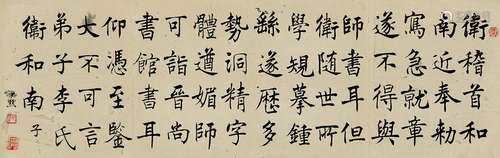 衛稽首和
南近奉勅
寫急就章
遂不得與
師書耳但
衛隨世所
學規摹鍾
繇遂歷多
勢洞精字
體遒媚師
可詣晉尚
書館書耳
仰憑至鑒
大不可言
弟子李氏
衛和南